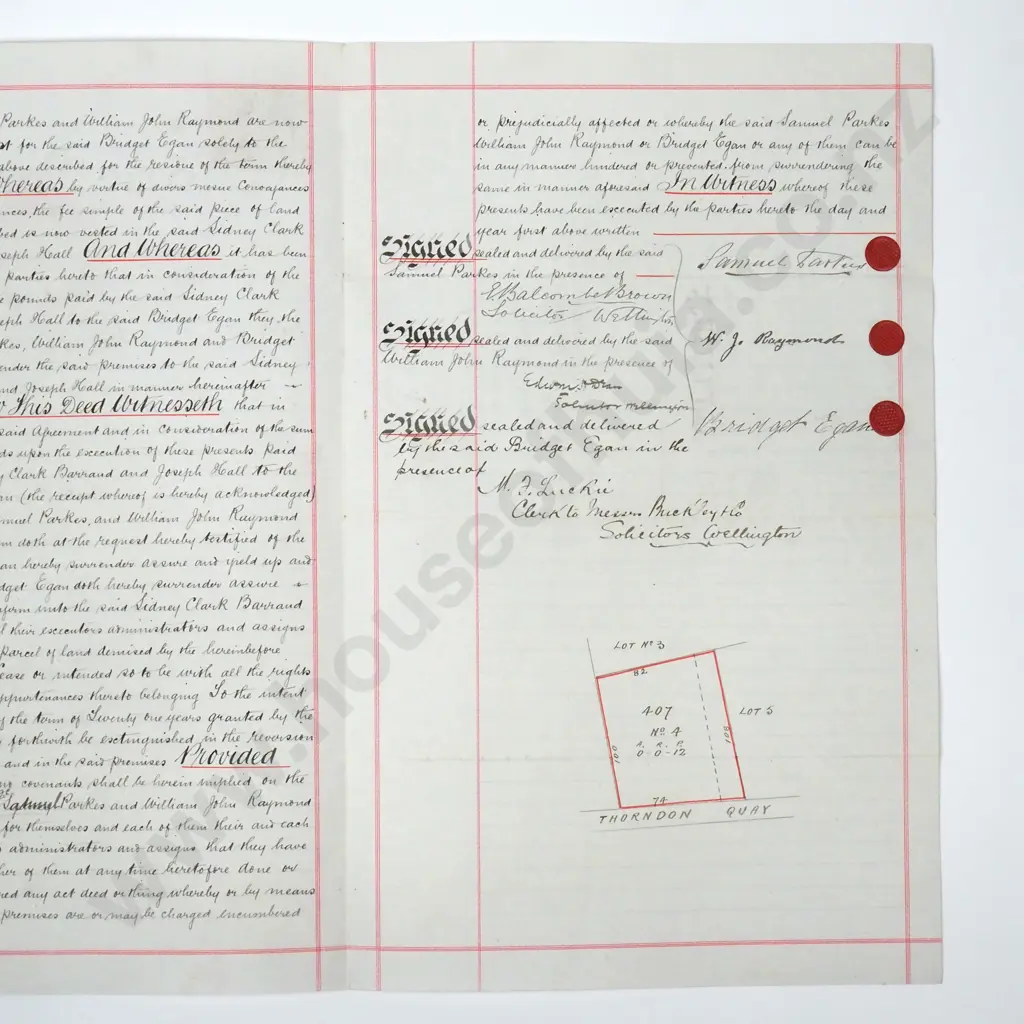 Parkes and William John Raymond are now
for the said Bridget Egan solely to the
above described for the residue of the term thereby
Whereas by virtue of divers mesne Conveyances
the fee simple of the said piece of land
is now vested in the said Sidney Clark
Joseph Hall And Whereas it has been
parties hereto that in consideration of the
pounds paid by the said Sidney Clark
Joseph Hall to the said Bridget Egan they the
William John Raymond and Bridget
the said premises to the said Sidney
and Joseph Hall in manner hereinafter
This Deed Witnesseth that in
said Agreement and in consideration of the sum
upon the execution of these presents paid
Clark Barraud and Joseph Hall to the
(the receipt whereof is hereby acknowledged)
Parkes, and William John Raymond
doth at the request hereby testified of the
hereby surrender assure and yield up and
Egan doth hereby surrender assure
unto the said Sidney Clark Barraud
their executors administrators and assigns
parcel of land demised by the hereinbefore
or intended so to be with all the rights
appurtenances thereto belonging To the intent
the term of Twenty one years granted by the
forthwith be extinguished in the reversion
and in the said premises Provided
covenants shall be herein implied on the
Samuel Parkes and William John Raymond
for themselves and each of them their and each
administrators and assigns that they have
of them at any time heretofore done or
any act deed or thing whereby or by means
premises are or may be charged encumbered
or prejudicially affected or whereby the said Samuel Parkes
William John Raymond or Bridget Egan or any of them can be
in any manner hindered or prevented from surrendering the
same in manner aforesaid In Witness whereof these
presents have been executed by the parties hereto the day and
year first above written
Signed sealed and delivered by the said
Samuel Parkes in the presence of
Samuel Parkes
E Balcombe Brown
Solicitor Wellington
Signed sealed and delivered by the said
William John Raymond in the presence of
W. J. Raymond
Solicitor Wellington
Signed sealed and delivered
by the said Bridget Egan in the
presence of
Bridget Egan
M. F. Luckie
Clerk to Messrs Buckley & Co
Solicitors Wellington
LOT No 3
82
407
No 4
A. R. P.
0-0-12
LOT 5
100
108
74
THORNDON QUAY